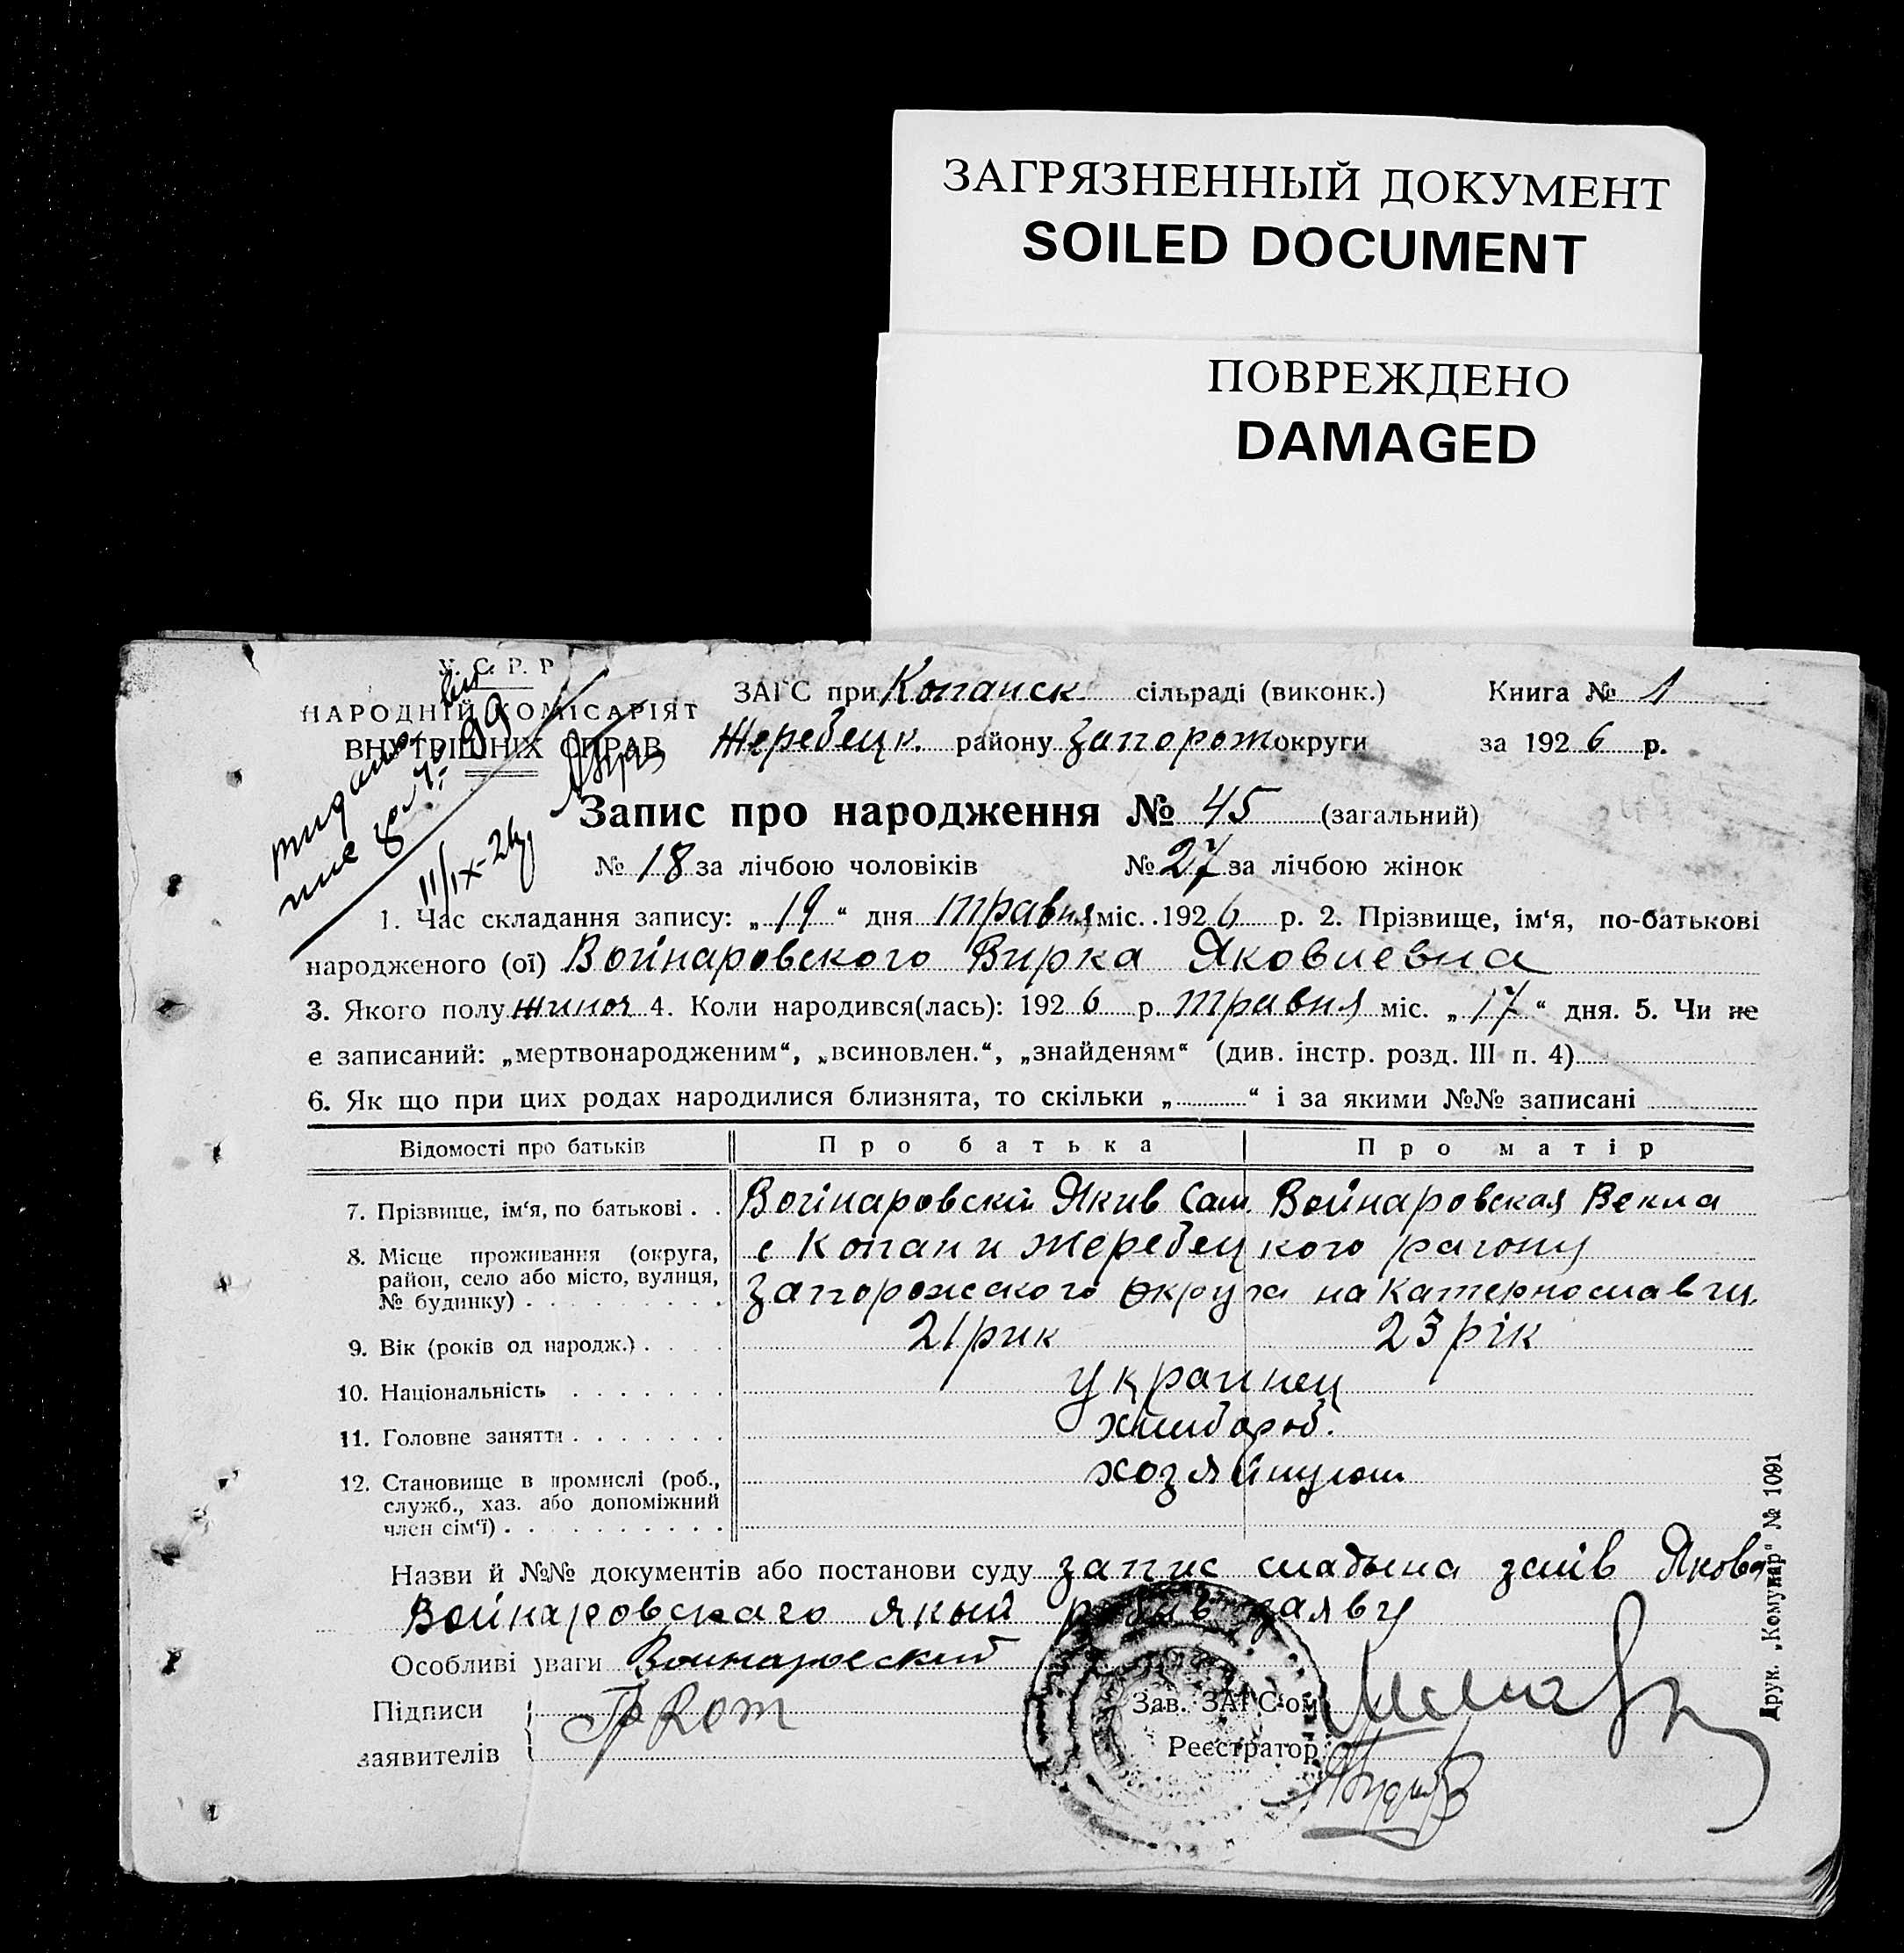 ЗАГРЯЗНЕННЫЙ ДОКУМЕНТ
SOILED DOCUMENT
ПОВРЕЖДЕНО
DAMAGED
У. С. Р. Р
НАРОДНІЙ КОМІСАРІЯТ
ВНУТРІШНІХ СПРАВ
11/IX-26
ЗАГС при Копанск сільраді (виконк.) Книга № 1
Жеребецк. району Запорож округи за 1926 р.
Запис про народження № 45 (загальний)
№ 18 за лічбою чоловіків № 27 за лічбою жінок
1. Час складання запису: „19“ дня травня міс. 1926 р. 2. Прізвище, ім‘я, по-батькові
народженого (ої) Войнаровского Вирка Яковлевна
3. Якого полу жиноч 4. Коли народився(лась): 1926 р. травня міс. „17“ дня. 5. Чи не
є записаний: „мертвонародженим“, „всиновлен.“, „знайденям“ (див. інстр. розд. III п. 4)
6. Як що при цих родах народилися близнята, то скільки „ “ і за якими №№ записані
Відомості про батьків Про батька Про матір
7. Прізвище, ім‘я, по батькові . . Войнаровский Якив Сам. Войнаровская Векла
8. Місце проживання (округа, с Копани Жеребецкого району
район, село або місто, вулиця, Запорожского округа на Катернославщ.
№ будинку)
9. Вік (років од народж.) 21 рик 23 рік
10. Національність украинец
11. Головне заняття хлибороб.
12. Становище в промислі (роб.,
служб., хаз. або допоміжний
член сім‘ї)
Назви й №№ документів або постанови суду запис зслів Якова
Войнаровскаго якый робыв заяву
Особливі уваги Войнаровский
Підписи
заявителів
Зав. ЗАГС‘ом
Реєстратор
Друк. „Комунар“ № 1091